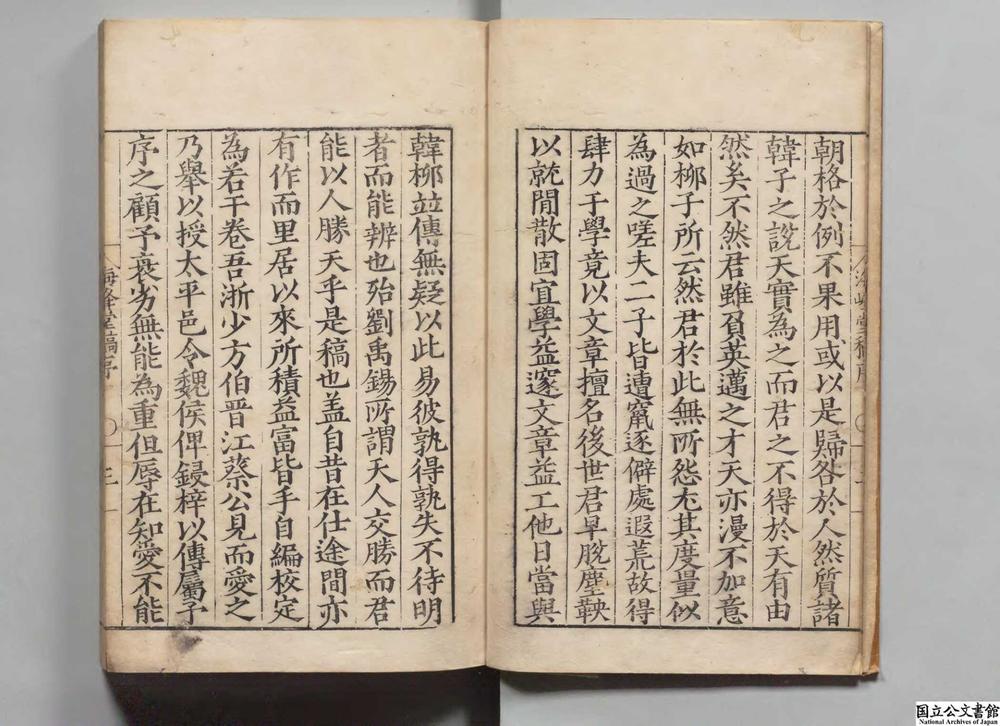 朝格於例不果用或以是歸咎於人然質諸
韓子之說天實為之而君之不得於天有由
然矣不然君雖負英邁之才天亦漫不加意
如柳子所云然君於此無所怨尤其度量似
為過之嗟夫二子皆遭竄逐僻處遐荒故得
肆力于學竟以文章擅名後世君早脫塵鞅
以就閒散固宜學益邃文章益工他日當與
韓柳並傳無疑以此易彼孰得孰失不待明
者而能辨也殆劉禹錫所謂天人交勝而君
能以人勝天乎是稿也蓋自昔在仕途間亦
有作而里居以來所積益富皆手自編校定
為若干卷吾浙少方伯晉江蔡公見而愛之
乃舉以授太平邑令魏侯俾鋟梓以傳屬予
序之顧予衰劣無能為重但辱在知愛不能
海峰堂稿序 三
国立公文書館
National Archives of Japan